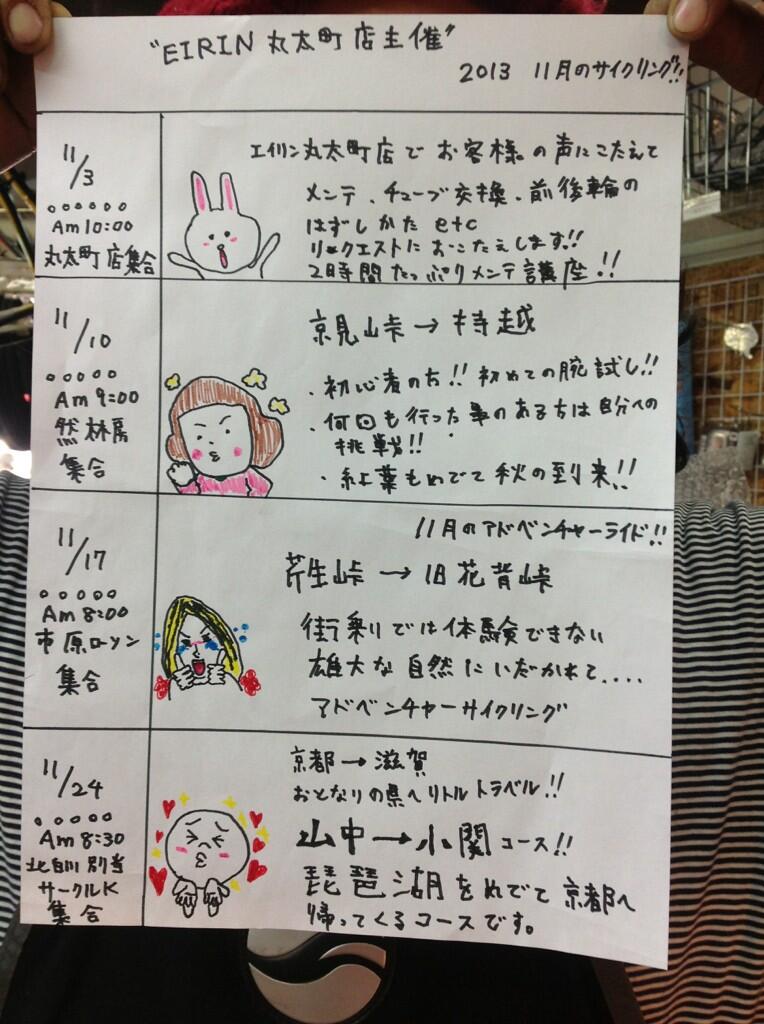 "EIRIN 丸太町店主催"
2013 11月のサイクリング!!
11/3
Am10:00
丸太町店集合
エイリン丸太町店でお客様の声にこたえて
メンテ、チューブ交換、前後輪の
はずしかた etc
リクエストにおこたえします!!
2時間たっぷりメンテ講座!!
11/10
Am9:00
然林房
集合
京見峠→持越
・初心者の方!! 初めての腕試し!!
・何回も行った事のある方は自分への
挑戦!!
・紅葉もめでて秋の到来!!
11/17
Am8:00
市原ローソン
集合
11月のアドベンチャーライド!!
芹生峠→旧花背峠
街乗りでは体験できない
雄大な自然にいだかれて....
アドベンチャーサイクリング
11/24
Am8:30
北白川別当
サークルK
集合
京都→滋賀
おとなりの県へリトルトラベル!!
山中→小関コース!!
琵琶湖をめでて京都へ
帰ってくるコースです。